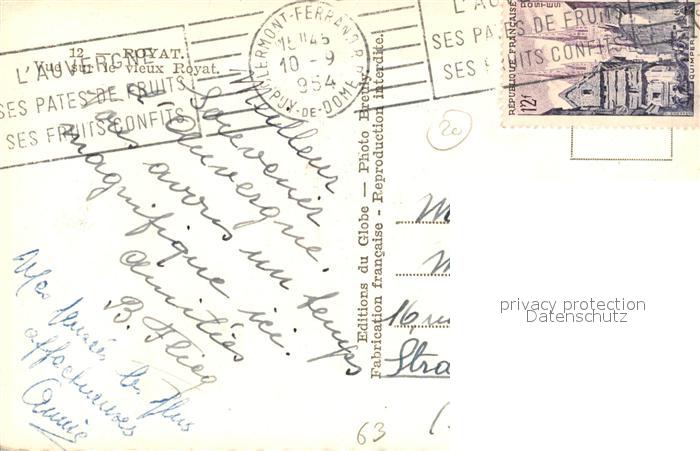 12 — ROYAT.
Vue sur le vieux Royat.
L'AUVERGNE
SES PATES DE FRUITS
SES FRUITS CONFITS
CLERMONT-FERRAND R.P.
18H45
10 - 9
1954
PUY-DE-DOME
L'AU
SES PATES DE FRUITS
SES FRUITS CONFITS
RÉPUBLIQUE FRANÇAISE
POSTES
12F
QUIMPER
20
Meilleur
Souvenir
d'Auvergne.
Nous avons un temps
magnifique ici.
Amitiés
B. Flieg
Mes pensées les plus
affectueuses
Annie
Editions du Globe — Photo Breuly.
Fabrication française - Reproduction interdite.
M
M
16, ru
Stra
63
privacy protection
Datenschutz